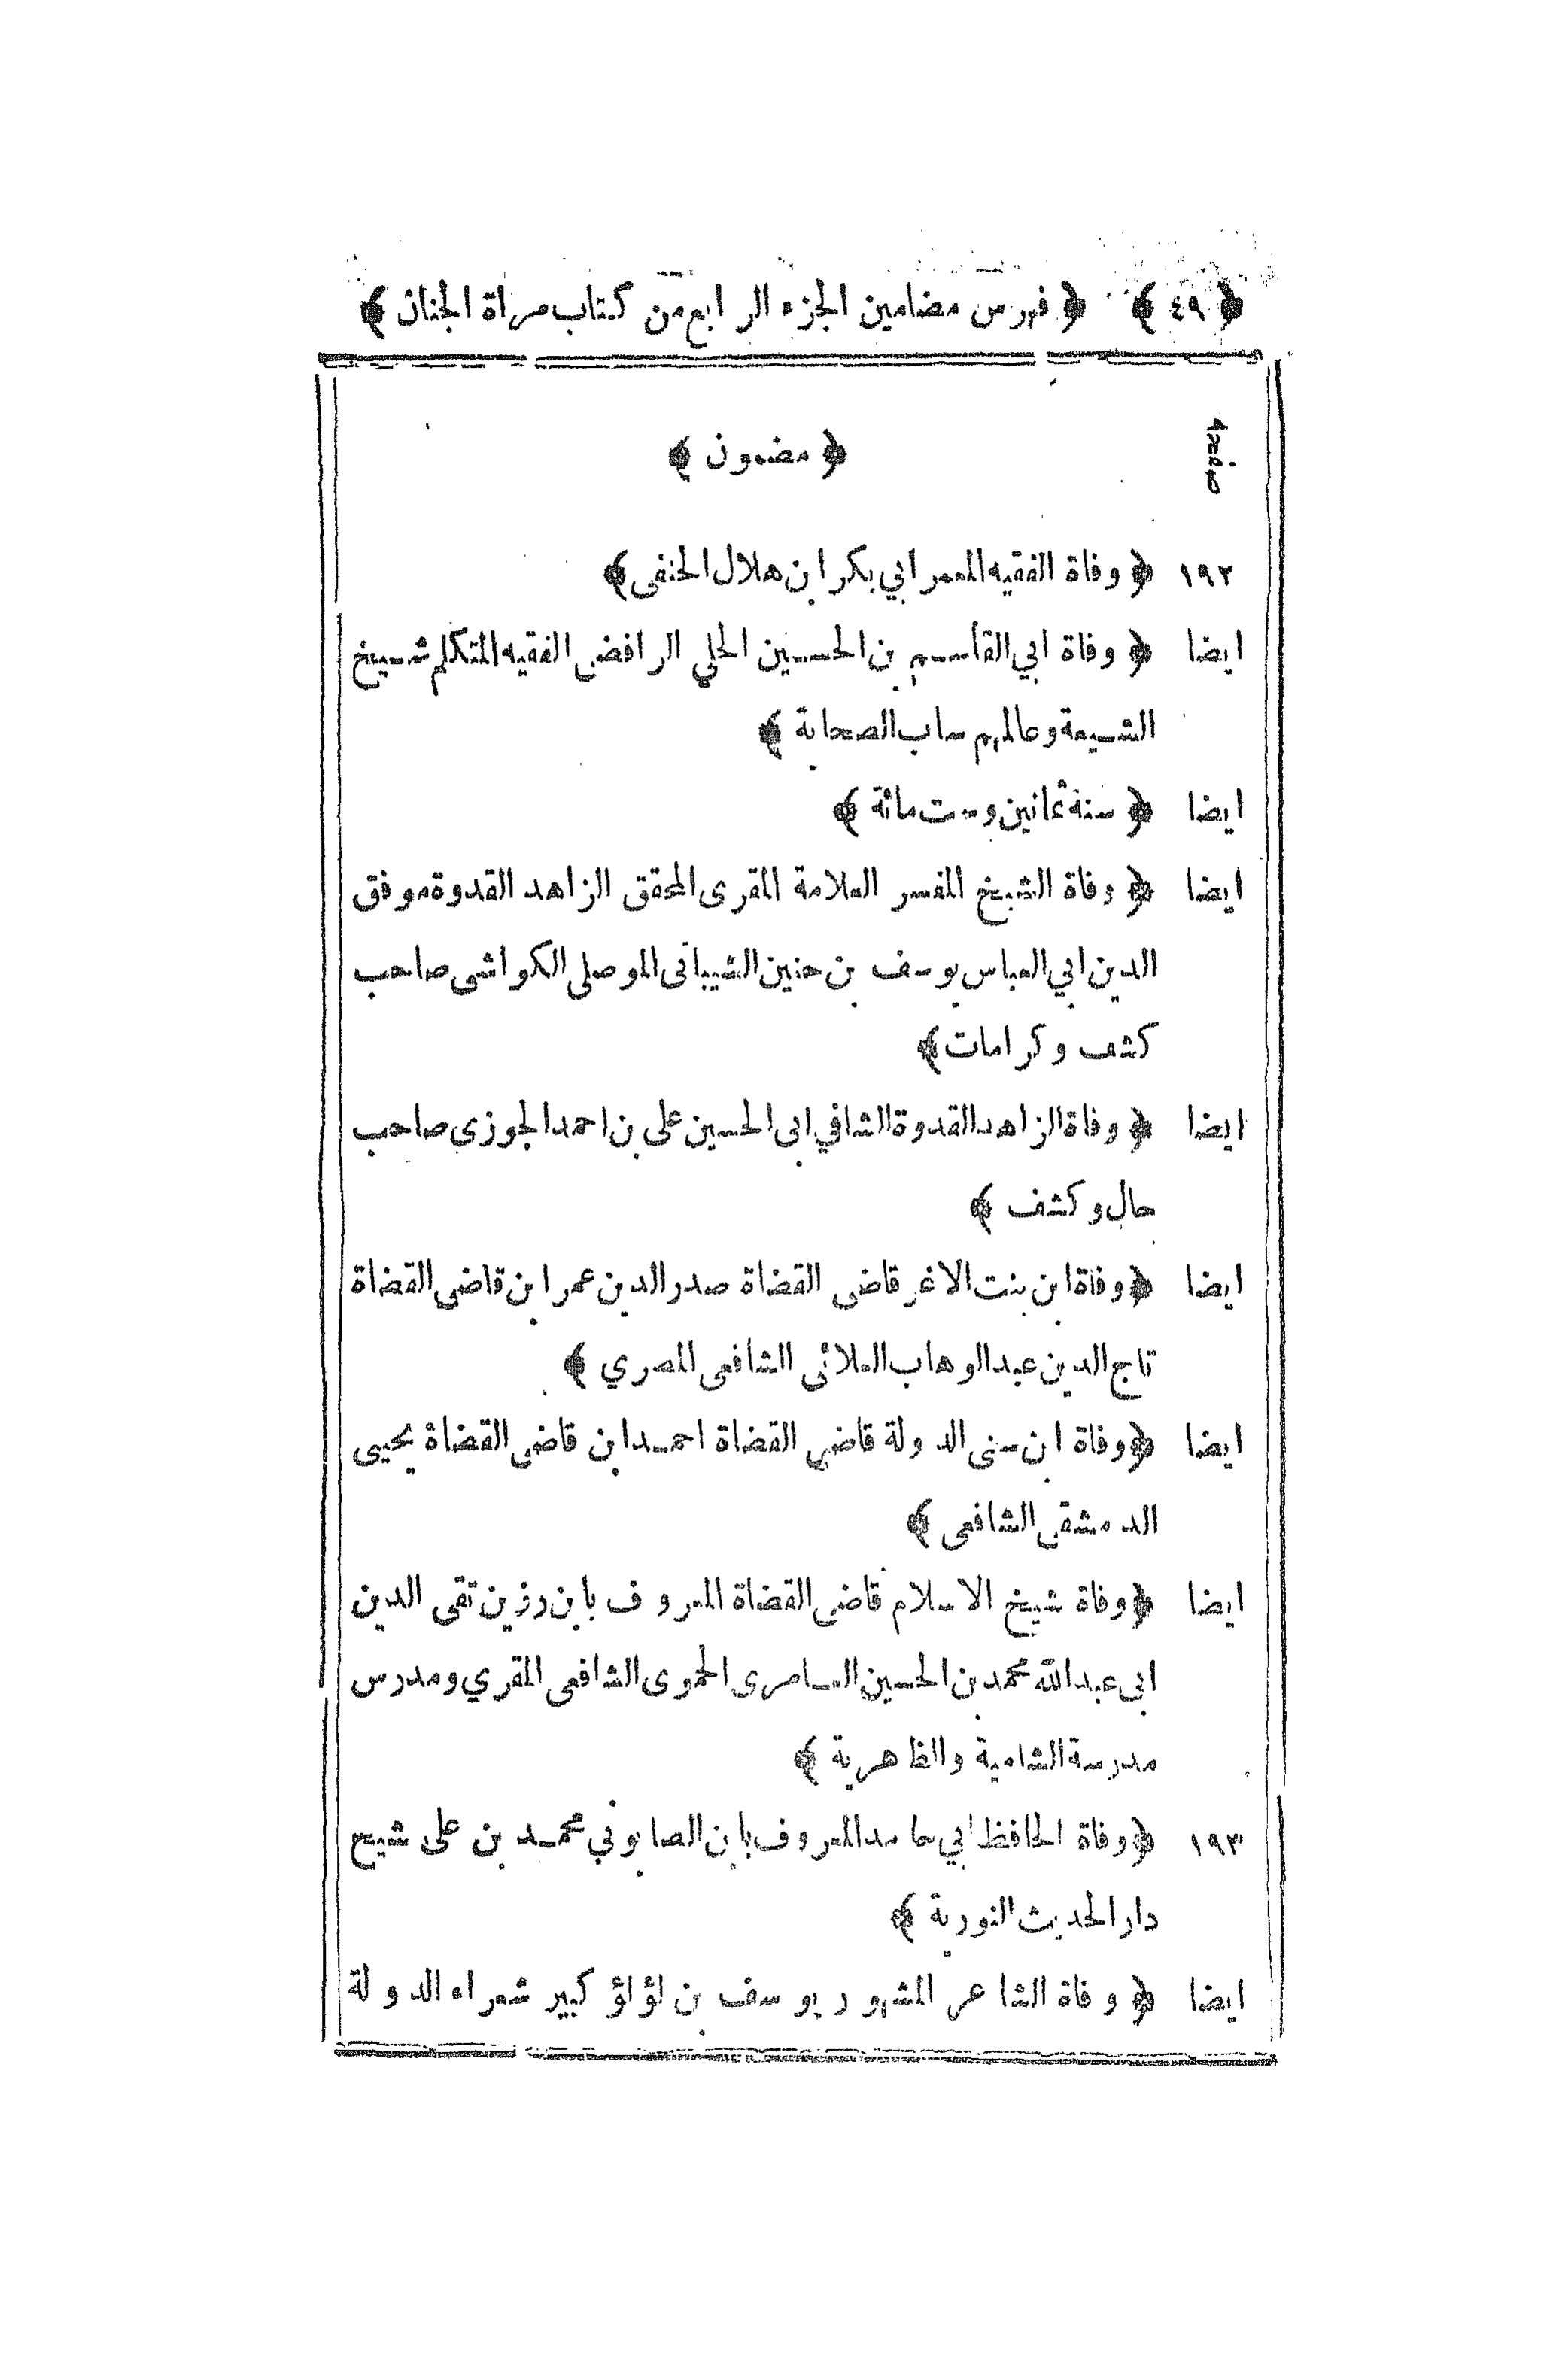 ﴿ ٤٩ ﴾ ﴿ فهرس مضامين الجزء الرابع من كتاب مراة الجنان ﴾
صفحه ﴿ مضمون ﴾
١٩٢ ﴿ وفاة الفقيه المعمر ابي بكر ابن هلال الحنفى ﴾
ايضا ﴿ وفاة ابي القاسم بن الحسين الحلي الرافضى الفقيه المتكلم شيخ
الشيعة وعالمهم ساب الصحابة ﴾
ايضا ﴿ سنة ثمانين وست مائة ﴾
ايضا ﴿ وفاة الشيخ المفسر العلامة المقرى المحقق الزاهد القدوة موفق
الدين ابي العباس يوسف بن حنين الشيبانى الموصلى الكواشى صاحب
كشف وكرامات ﴾
ايضا ﴿ وفاة الزاهد القدوة الشافي ابى الحسين على بن احمد الجوزى صاحب
حال وكشف ﴾
ايضا ﴿ وفاة ابن بنت الاغر قاضى القضاة صدر الدين عمر ابن قاضى القضاة
تاج الدين عبد الوهاب العلائى الشافعى المصري ﴾
ايضا ﴿ وفاة ابن سنى الدولة قاضى القضاة احمد ابن قاضى القضاة يحيى
الدمشقى الشافعى ﴾
ايضا ﴿ وفاة شيخ الاسلام قاضى القضاة المعروف بابن رزين تقى الدين
ابى عبد الله محمد بن الحسين العامرى الحموى الشافعى المقري ومدرس
مدرسة الشامية والظاهرية ﴾
١٩٣ ﴿ وفاة الحافظ ابي حامد المعروف بابن الصابوني محمد بن على شيخ
دار الحديث النورية ﴾
ايضا ﴿ وفاة الشاعر المشهور يوسف بن لؤلؤ كبير شعراء الدولة